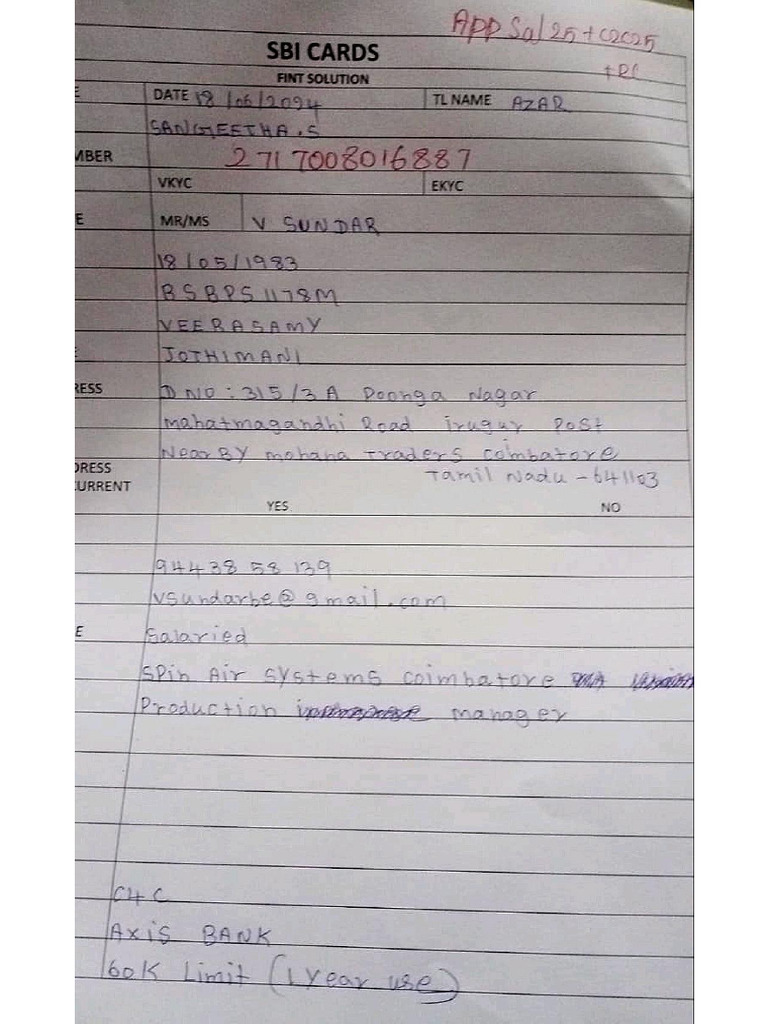 App Sal 25 + C2C25
+ RC
SBI CARDS
FINT SOLUTION
E DATE 18/06/2024 TL NAME AZAR
SANGEETHA.S
MBER 2717008016887
VKYC EKYC
E MR/MS V SUNDAR
18/05/1983
BSBPS1178M
VEERASAMY
JOTHIMANI
RESS D NO : 315/3A Poonga Nagar
mahatmagandhi Road irugur Post
Near BY mohana Traders coimbatore
DRESS Tamil Nadu - 641103
CURRENT
YES NO
94438 58 139
vsundarbe@gmail.com
E Salaried
Spin Air systems coimbatore
Production manager
C4C
AXIS BANK
60K Limit (1 Year use)